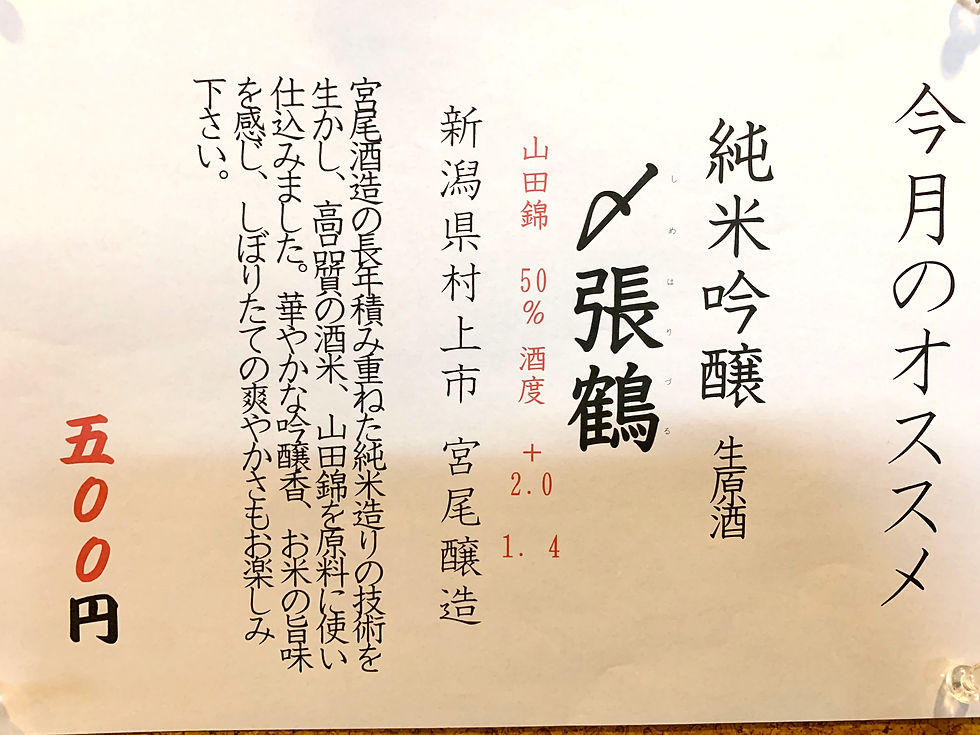 今月のオススメ
純米吟醸 生原酒
しめはりづる
〆張鶴
山田錦 50% 酒度 +2.0 1.4
新潟県村上市 宮尾醸造
宮尾酒造の長年積み重ねた純米造りの技術を
生かし、高品質の酒米、山田錦を原料に使い
仕込みました。華やかな吟醸香、お米の旨味
を感じ、しぼりたての爽やかさもお楽しみ
下さい。
五００円